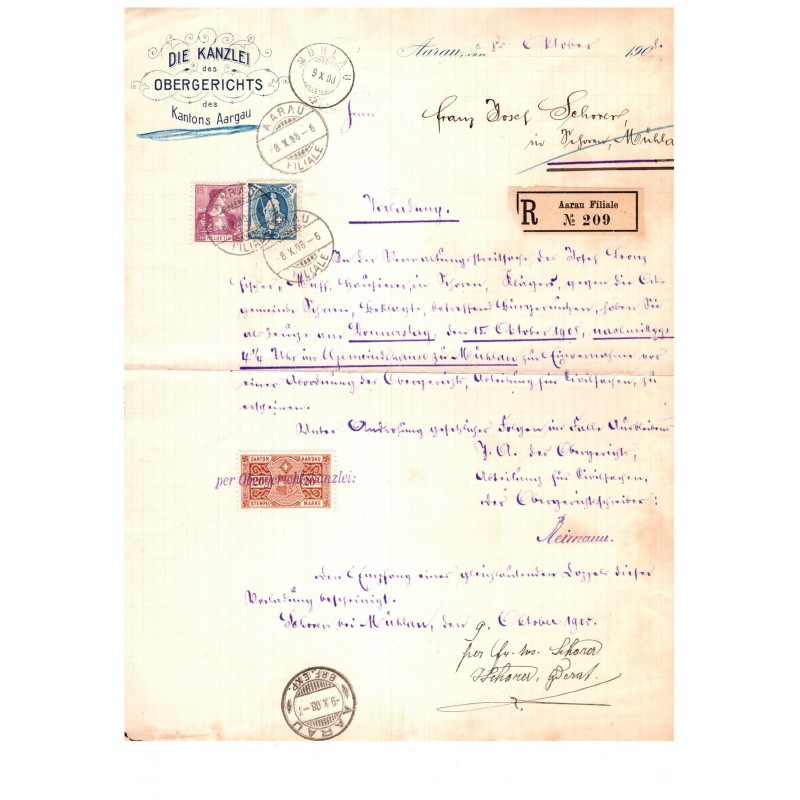 DIE KANZLEI
des
OBERGERICHTS
des
Kantons Aargau
MÜHLAU
9 X 08
AARAU
-8.X.08-6
FILIALE
Aarau, den 8. Oktober 1908.
Herrn
Franz Josef Schorer,
in Schoren, Mühlau
15
HELVETIA
25
AARAU
-8.X.08-6
FILIALE
R
Aarau Filiale
№ 209
Vorladung.
In der Verwaltungsstreitsache des Josef Leonz
Fischer, Hausierer, in Schoren, Klägers, gegen die Orts-
gemeinde Schoren, Beklagte, betreffend Bürgernutzen, haben Sie
als Zeuge am Donnerstag, den 15. Oktober 1908, nachmittags
4¼ Uhr im Gemeindehause zu Mühlau zur Einvernahme vor
einer Abordnung des Obergerichts, Abteilung für Civilsachen, zu
erscheinen.
Unter Androhung gesetzlicher Folgen im Falle Ausbleibens
I. A. des Obergerichts,
Abteilung für Civilsachen,
Der Obergerichtsschreiber:
CANTON AARGAU
20 20
STEMPEL MARKE
per Obergerichtskanzlei:
Reimann.
Den Empfang eines gleichlautenden Doppels dieser
Vorladung bescheinigt.
Schoren bei Mühlau, den 9. Oktober 1908.
per Schorer
Schorer,
AARAU
-9.X.08-
BRF. EXP.